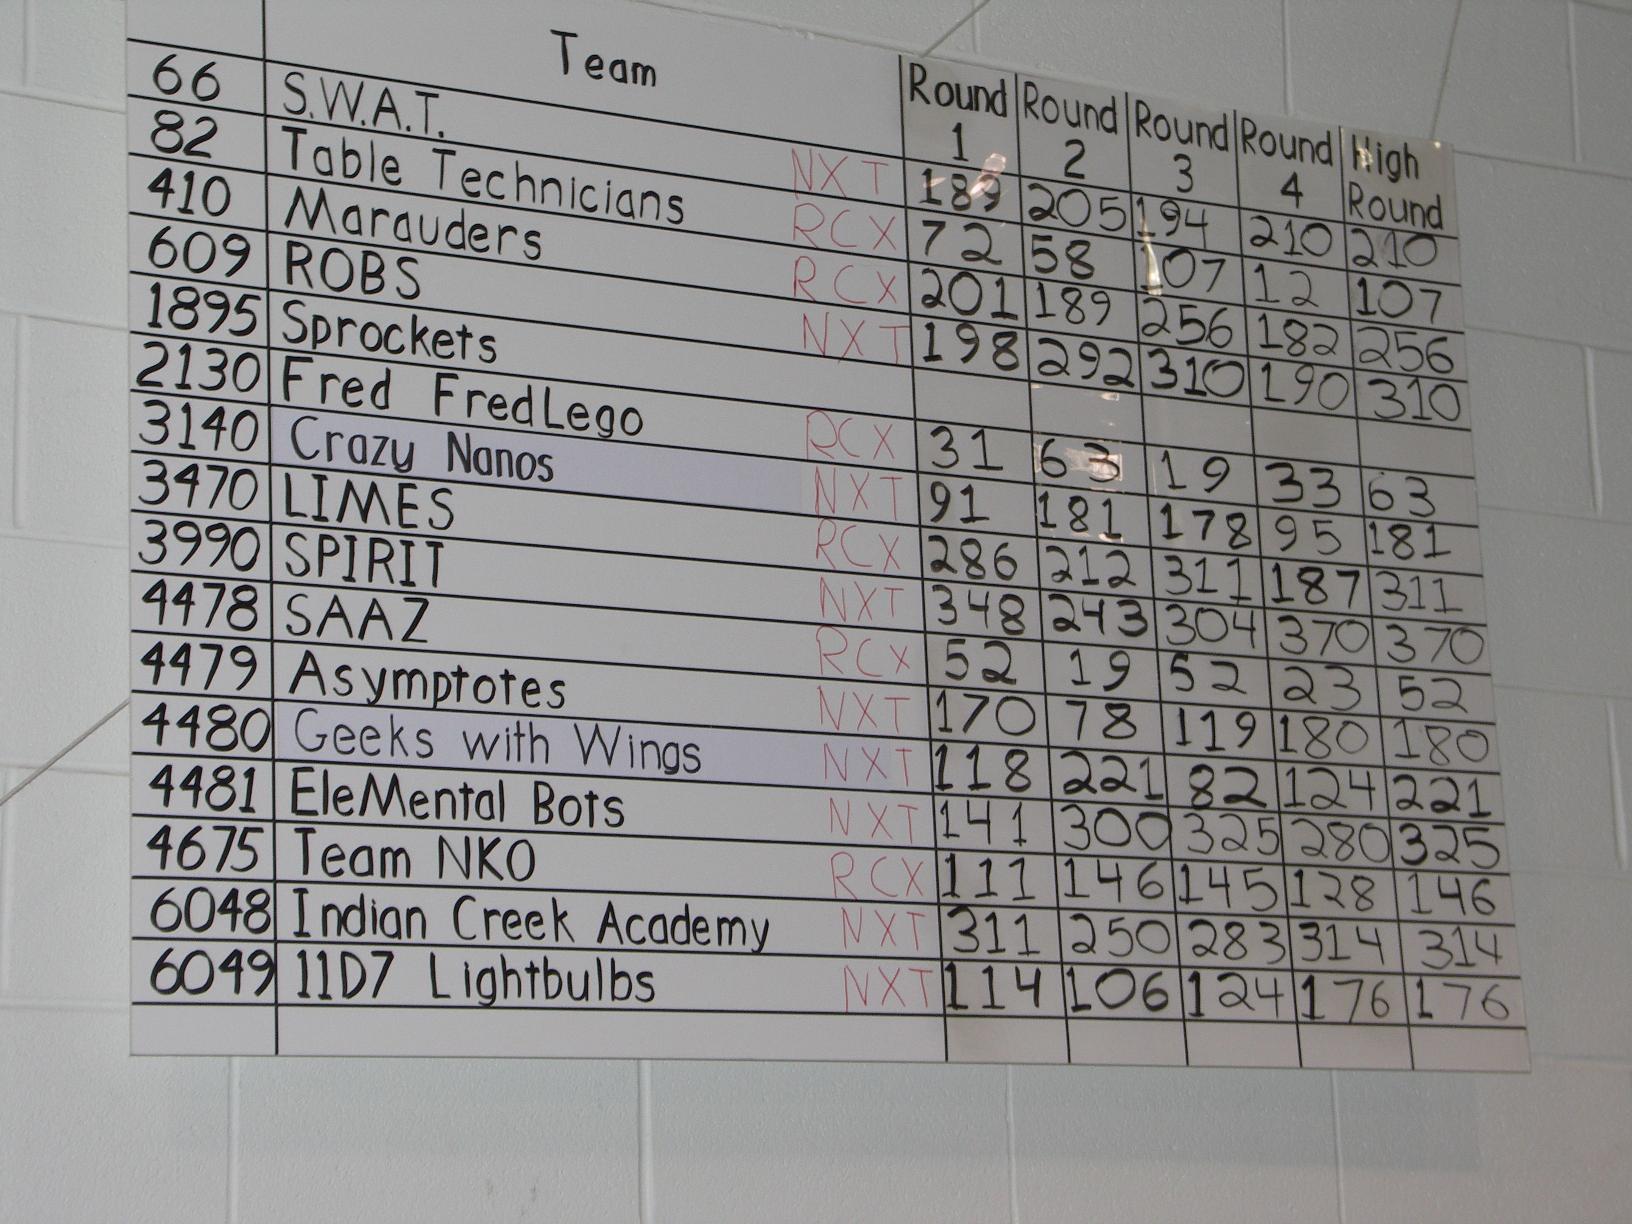 Team Round 1 Round 2 Round 3 Round 4 High Round
66 S.W.A.T. NXT 189 205 194 210 210
82 Table Technicians RCX 72 58 107 12 107
410 Marauders RCX 201 189 256 182 256
609 ROBS NXT 198 292 310 190 310
1895 Sprockets
2130 Fred FredLego RCX 31 63 19 33 63
3140 Crazy Nanos NXT 91 181 178 95 181
3470 LIMES RCX 286 212 311 187 311
3990 SPIRIT NXT 348 243 304 370 370
4478 SAAZ RCX 52 19 52 23 52
4479 Asymptotes NXT 170 78 119 180 180
4480 Geeks with Wings NXT 118 221 82 124 221
4481 EleMental Bots NXT 141 300 325 280 325
4675 Team NKO RCX 111 146 145 128 146
6048 Indian Creek Academy NXT 311 250 283 314 314
6049 11D7 Lightbulbs NXT 114 106 124 176 176